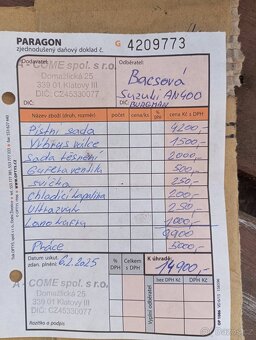 PARAGON
zjednodušený daňový doklad č.
G 4209773
Dodavatel:
A - COME spol. s r.o.
Domažlická 25
339 01 Klatovy III
DIČ: CZ45330077
Odběratel:
Bacsová
Suzuki AN400
BURGMAN
DIČ:
Název zboží (druh, rozměr) počet cena/ks % DPH cena Kč s DPH
Pístní sada 4200,-
Výbrus válce 1500,-
Sada těsnění 2000,-
Gufera ventilů 500,-
svíčka 250,-
Chladící kapalina 200,-
Ultrazvuk 250,-
Lano karty 1000,-
9900
Práce 5000,-
Datum uskut. zdan. plnění 6.2.2025 % DPH DPH K úhradě: 14900,-
A - COME spol. s r.o.
Domažlická 25
339 01 Klatovy III
DIČ: CZ45330077
Razítko a podpis
bez DPH Kč DPH Celkem s DPH
Vyplní odběratel
bez DPH Kč
Kč